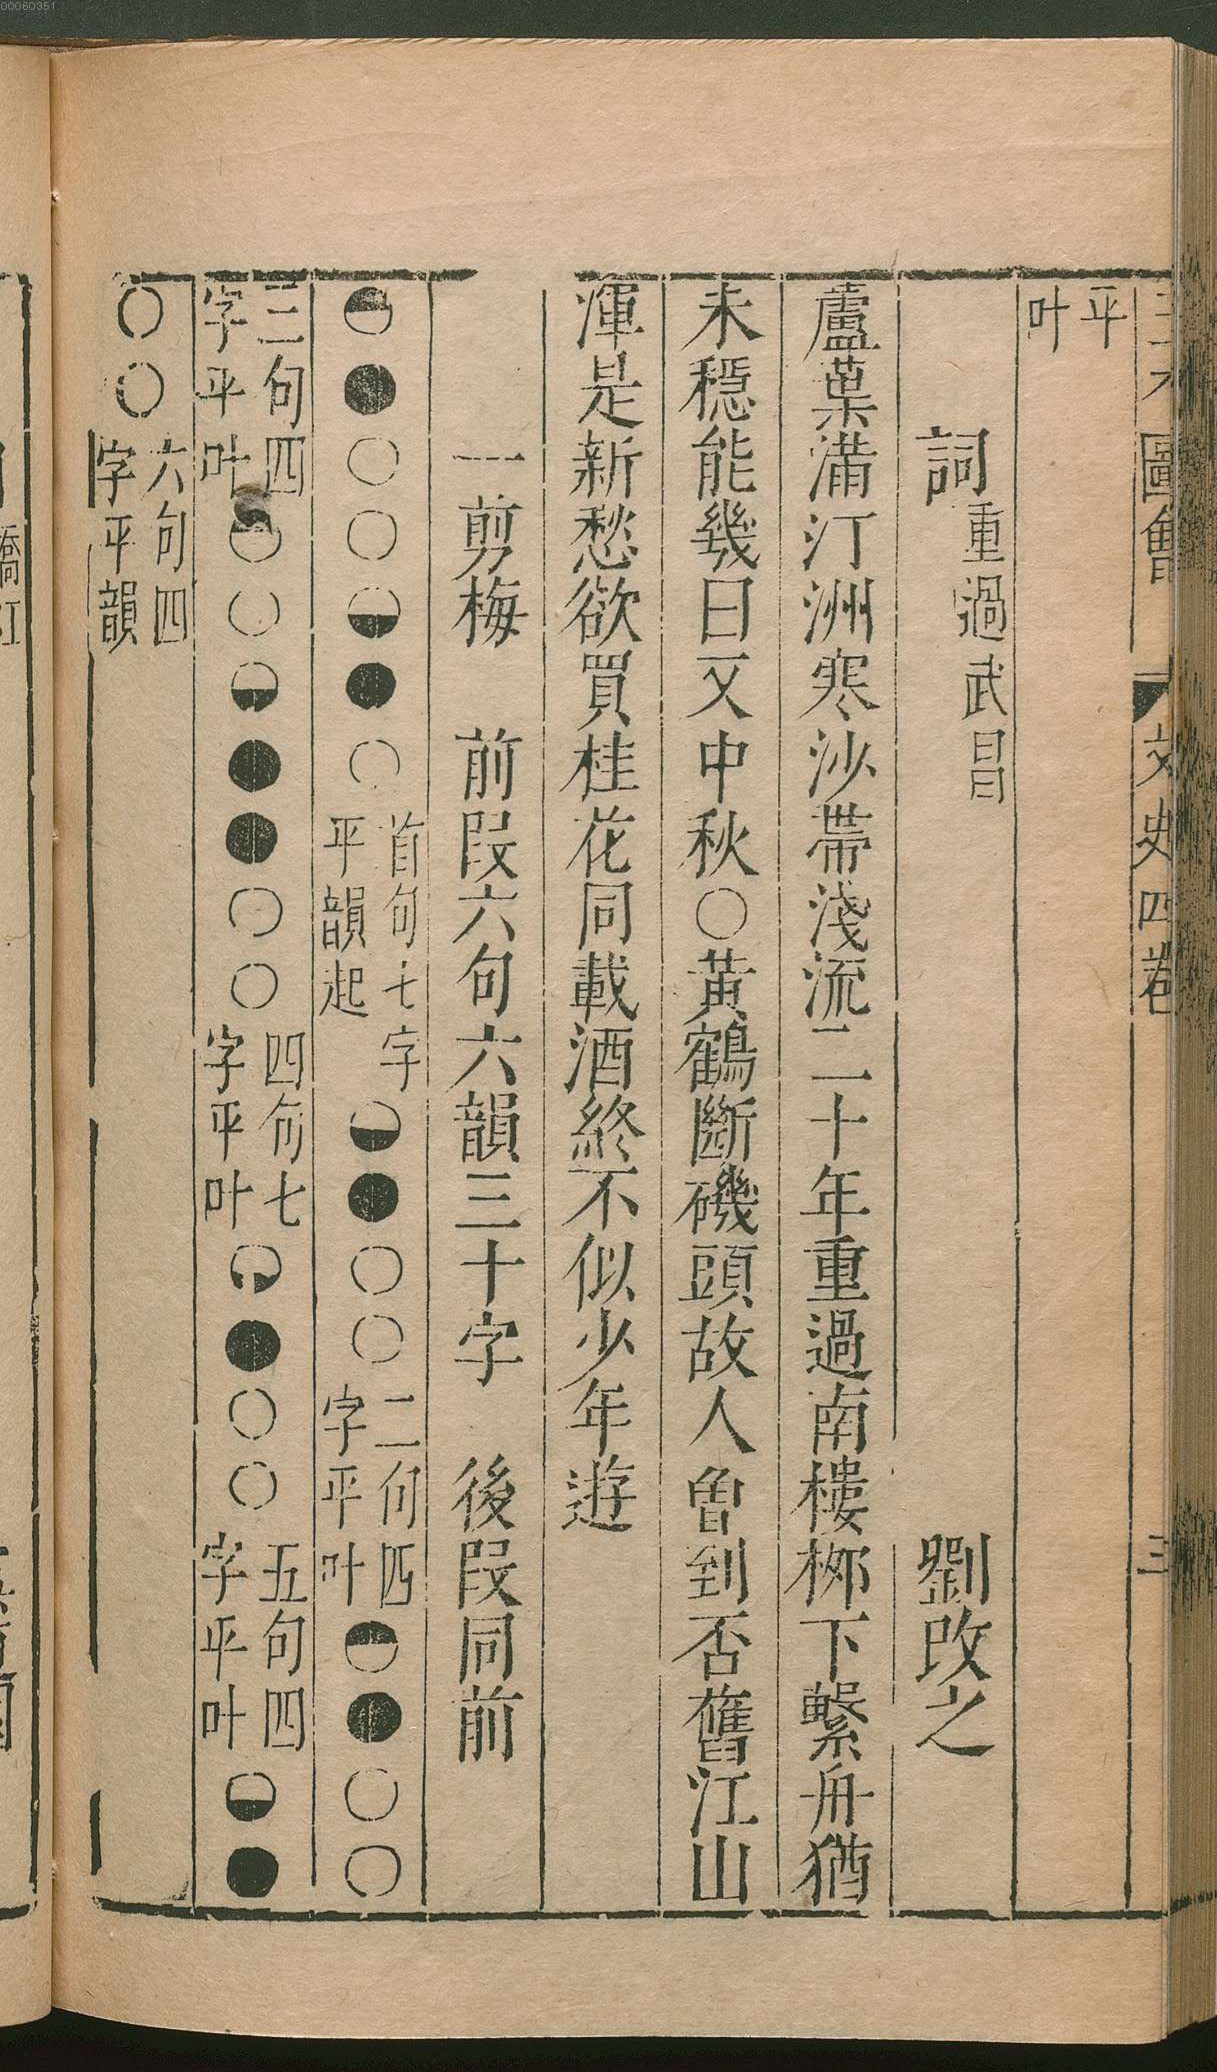 00060351
三才圖會 文史四卷 三
平叶
詞 重過武昌 劉改之
蘆葉滿汀洲寒沙帶淺流二十年重過南樓栁下繫舟猶
未穩能幾日又中秋○黃鶴斷磯頭故人曾到否舊江山
渾是新愁欲買桂花同載酒終不似少年遊
一剪梅 前段六句六韻三十字 後段同前
◓●○○◒●○ 首句七字平韻起 ◒●○○ 二句四字平叶 ◓●○○
三句四字平叶 ◓○◒●●○○ 四句七字平叶 ◒●○○ 五句四字平叶 ◒●
○○ 六句四字平韻